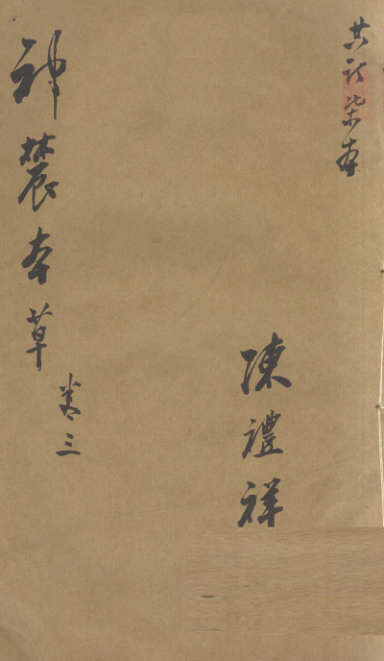 共訂柒本
陳禮祥
神農本草
卷三